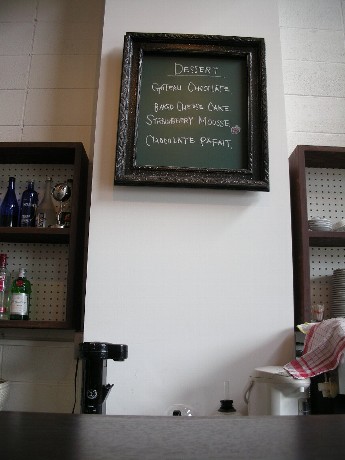 DESSERT
GATEAU CHOCOLATE
BAKED CHEESE CAKE
STRAWBERRY MOUSSE
CHOCOLATE PAFAIT.